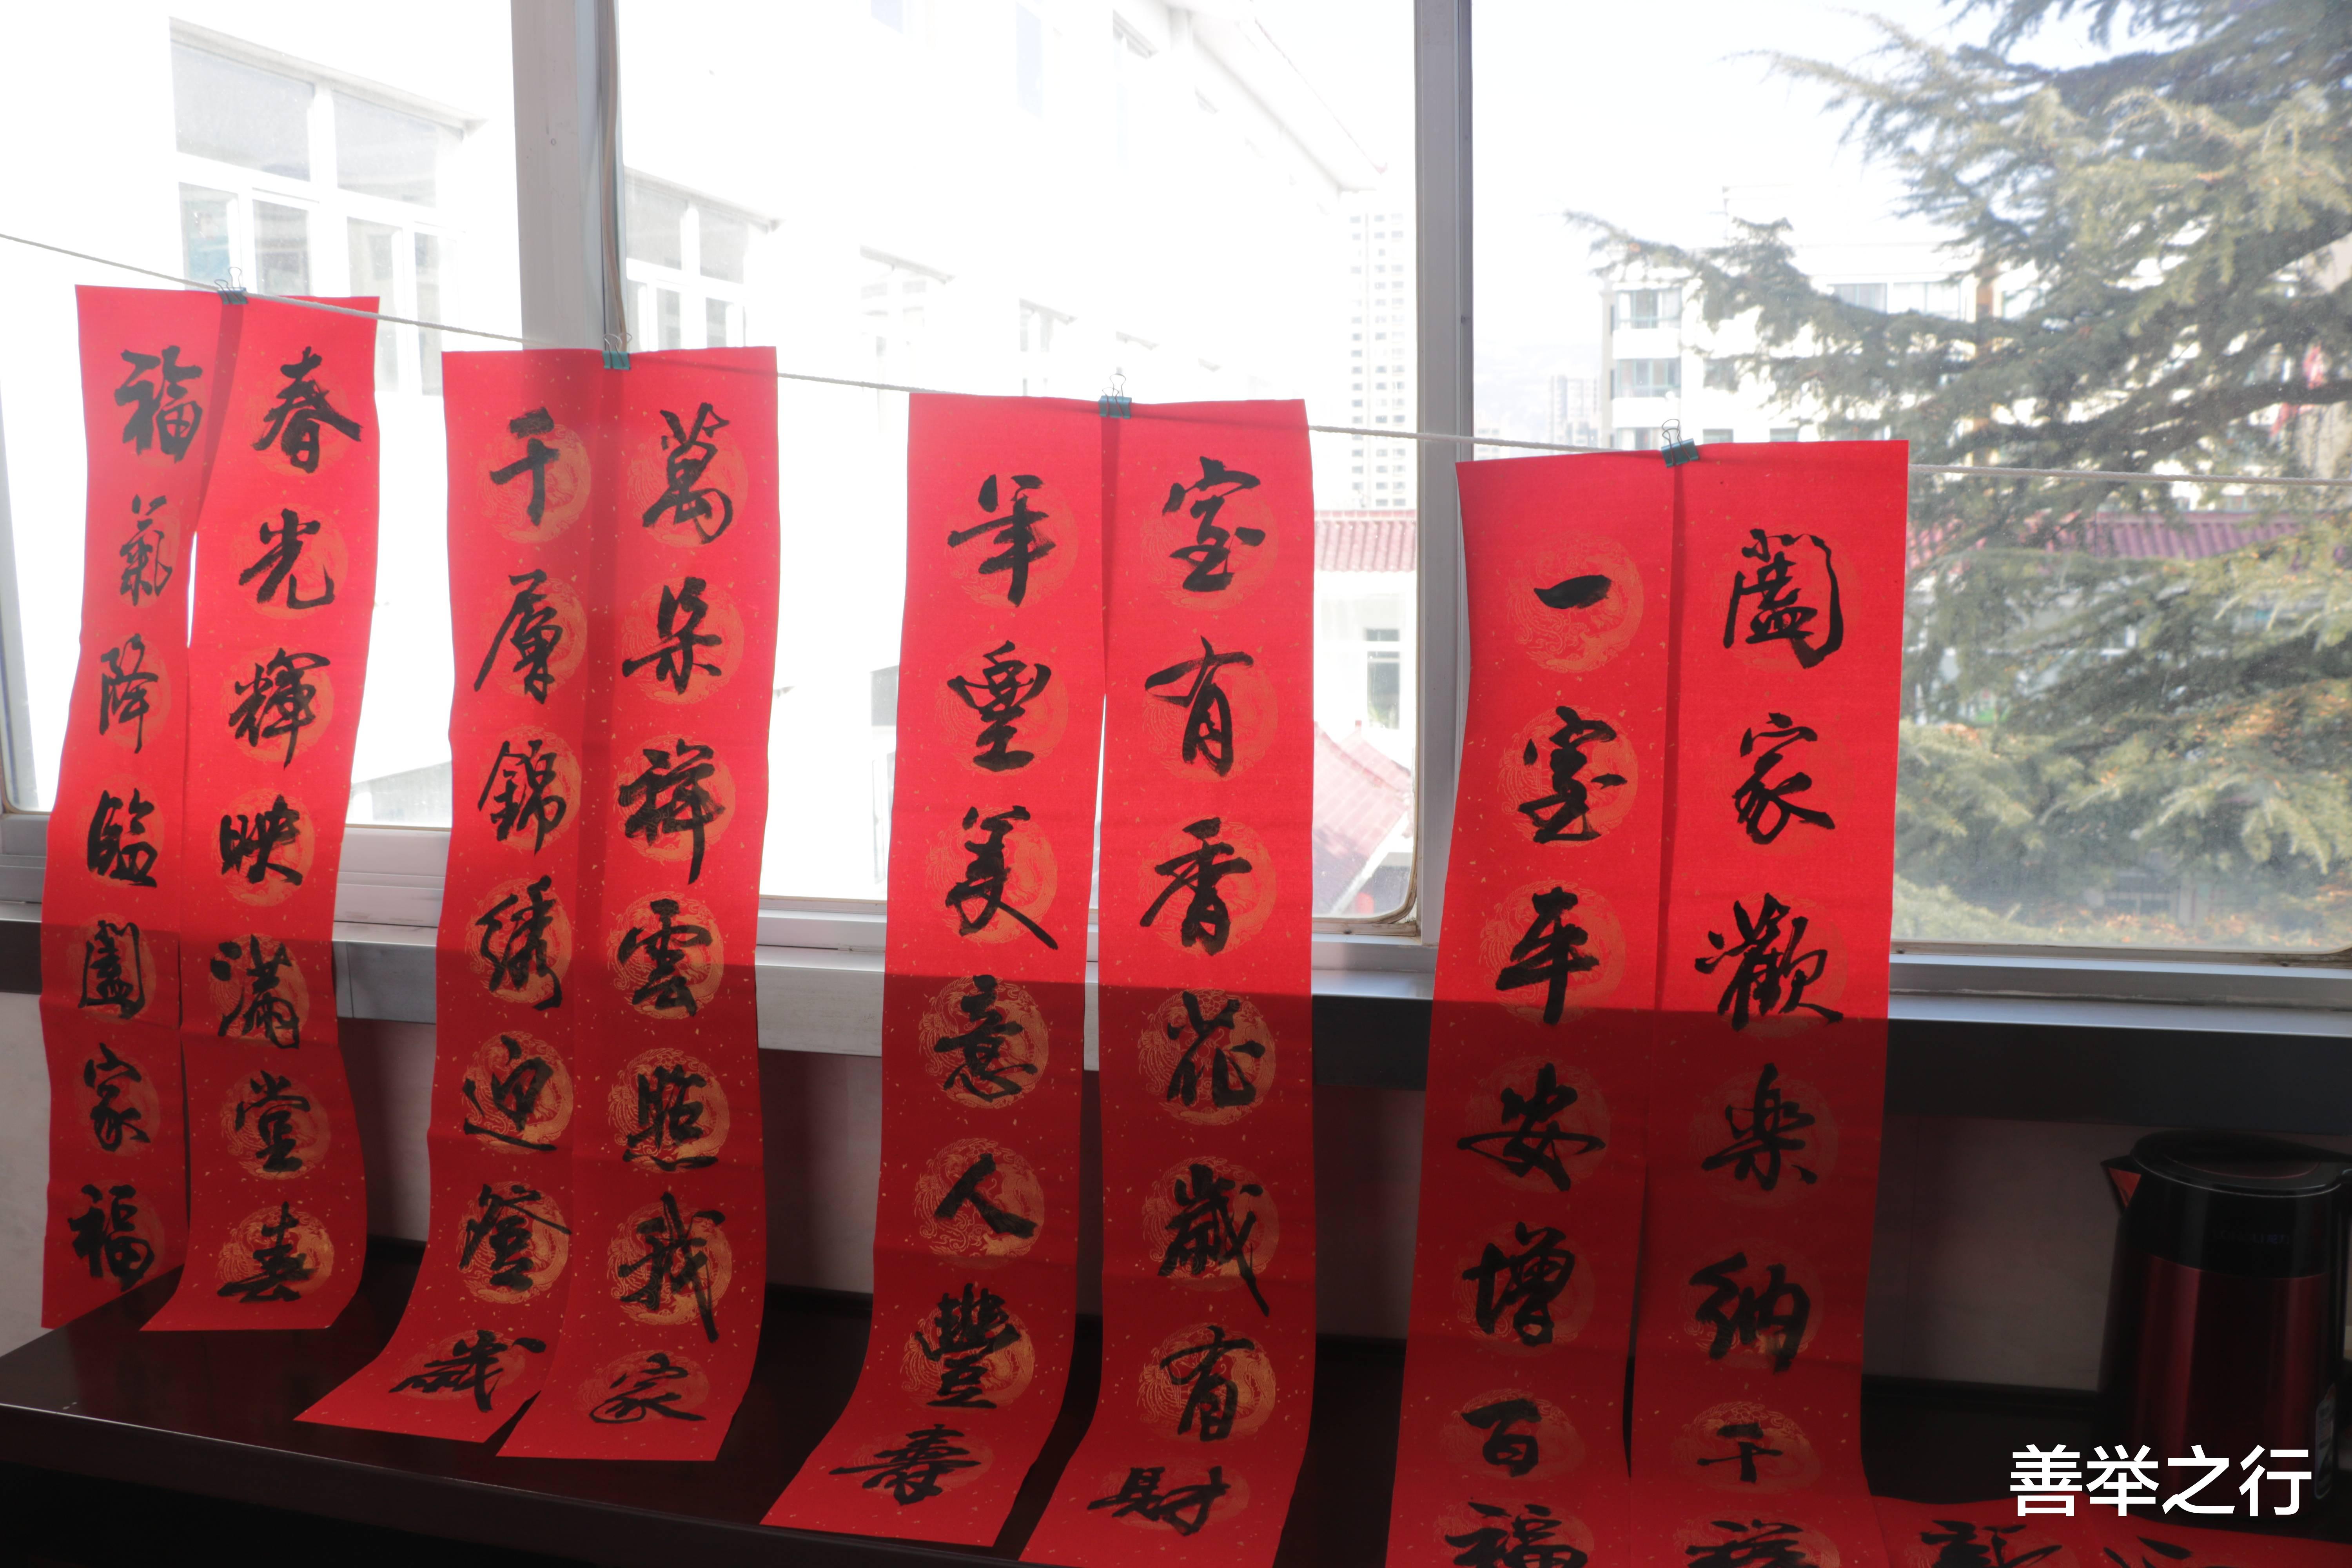 闔家歡楽納千祥
一室平安增百福
室有香花歲有財
年美意人豐壽
萬朵祥雲照我家
千層錦綉迎登歲
春光輝映滿堂春
福氣降臨闔家福
善举之行